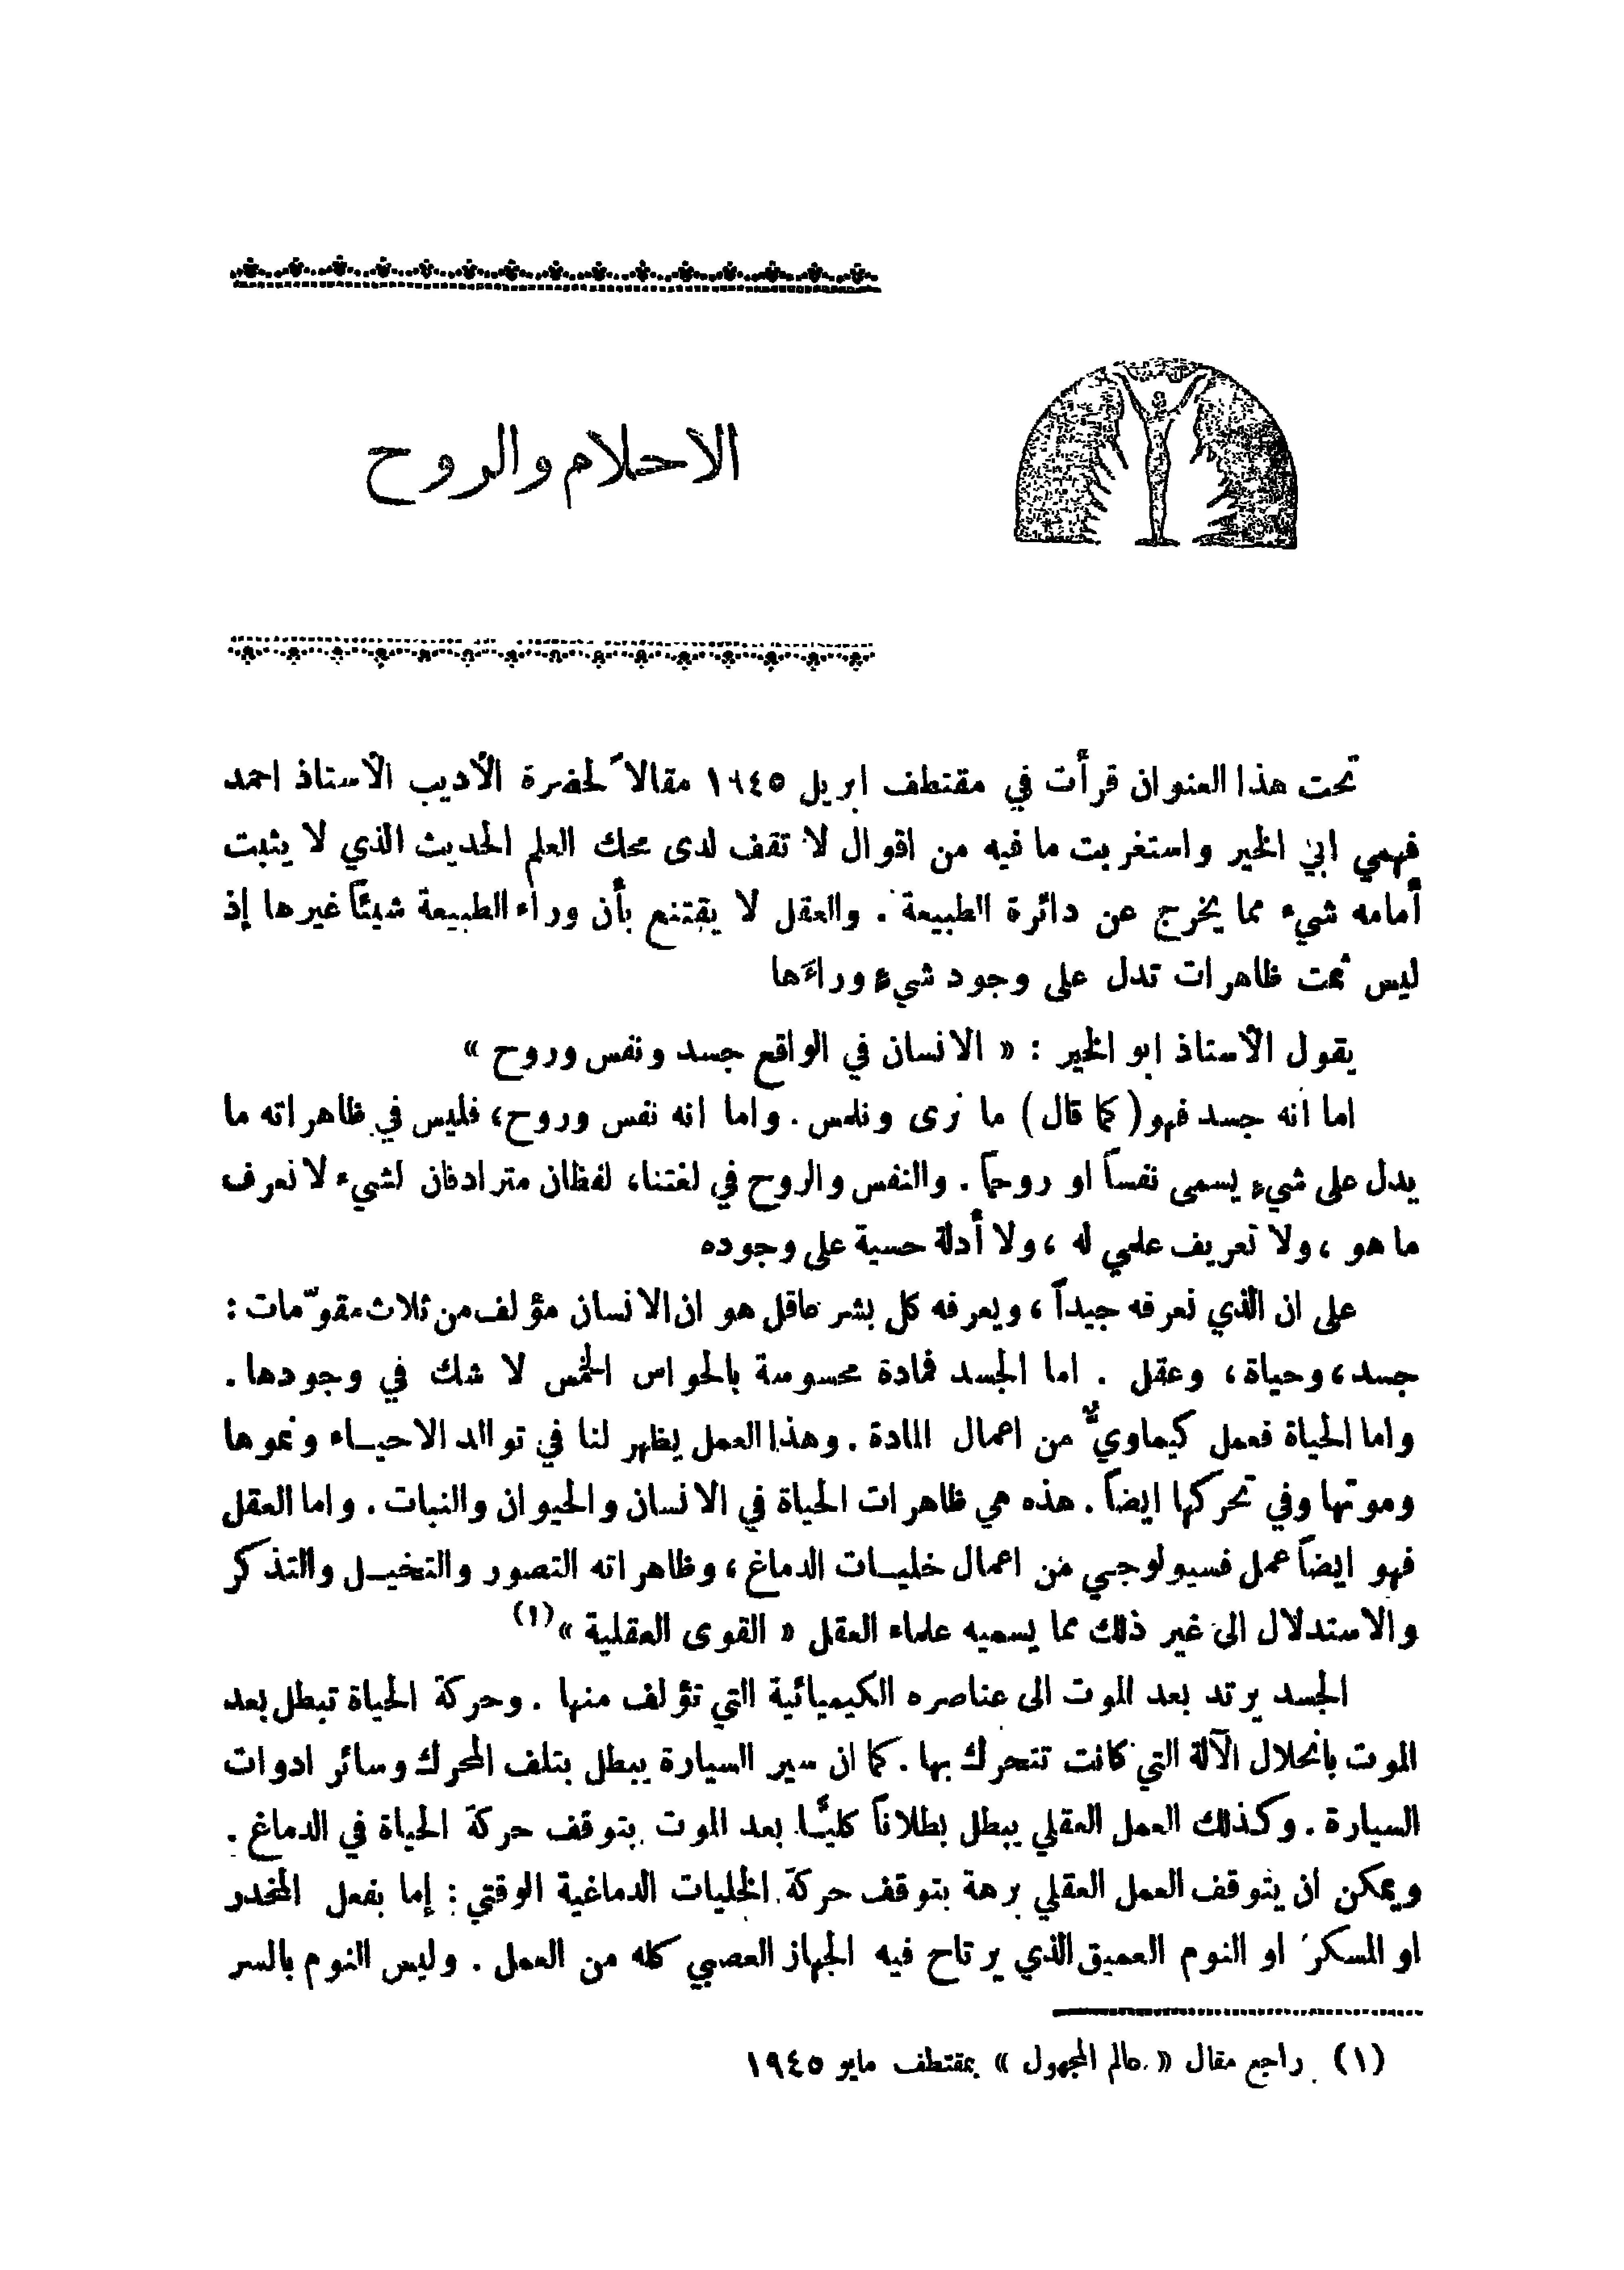 الاحلام والروح
تحت هذا العنوان قرأت في مقتطف ابريل ١٩٤٥ مقالاً لحضرة الأديب الأستاذ احمد
فهمي ابي الخير واستغربت ما فيه من اقوال لا تقف لدى محك العلم الحديث الذي لا يثبت
أمامه شيء مما يخرج عن دائرة الطبيعة . والعقل لا يقتنع بأن وراء الطبيعة شيئاً غيرها إذ
ليس ثمت ظاهرات تدل على وجود شيءٍ وراءَها
يقول الأستاذ ابو الخير : « الانسان في الواقع جسد ونفس وروح »
اما انه جسد فهو ( كما قال ) ما نرى ونلمس . واما انه نفس وروح، فليس في ظاهراته ما
يدل على شيءٍ يسمى نفساً او روحاً . والنفس والروح في لغتنا، لفظان مترادفان لشيء لا نعرف
ما هو ، ولا تعريف علمي له ، ولا أدلة حسية على وجوده
على ان الذي نعرفه جيداً ، ويعرفه كل بشر عاقل هو ان الانسان مؤلف من ثلاث مقوّمات :
جسد، وحياة، وعقل . اما الجسد فمادة محسوسة بالحواس الخمس لا شك في وجودها .
واما الحياة فعمل كيماويٌّ من اعمال المادة . وهذا العمل يظهر لنا في توالد الاحياء ونموها
وموتها وفي تحركها ايضاً . هذه هي ظاهرات الحياة في الانسان والحيوان والنبات . واما العقل
فهو ايضاً عمل فسيولوجي من اعمال خليات الدماغ ، وظاهراته التصور والتخيل والتذكر
والاستدلال الى غير ذلك مما يسميه علماء العقل « القوى العقلية »(١)
الجسد يرتد بعد الموت الى عناصره الكيميائية التي تؤلف منها . وحركة الحياة تبطل بعد
الموت بانحلال الآلة التي كانت تتحرك بها . كما ان سير السيارة يبطل بتلف المحرك وسائر ادوات
السيارة . وكذلك العمل العقلي يبطل بطلاناً كليًّا بعد الموت بتوقف حركة الحياة في الدماغ .
ويمكن ان يتوقف العمل العقلي برهة بتوقف حركة الخليات الدماغية الوقتي : إما بفعل المخدر
او المسكر او النوم العميق الذي يرتاح فيه الجهاز العصبي كله من العمل . وليس النوم بالسر
(١) راجع مقال « عالم المجهول » بمقتطف مايو ١٩٤٥